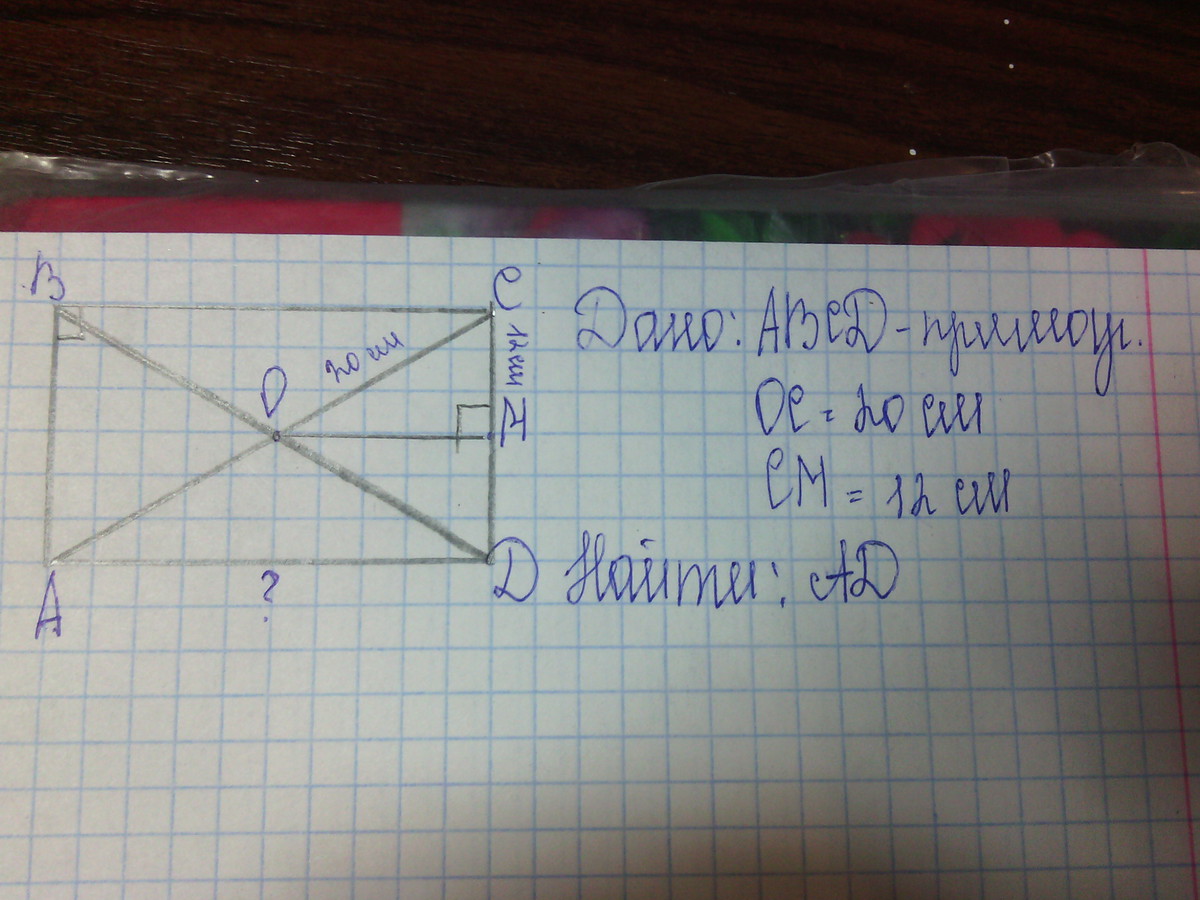 B
C
O
20 см
12 см
M
A
?
D
Дано: ABCD - прямоуг.
OC = 20 см
CM = 12 см
Найти: AD